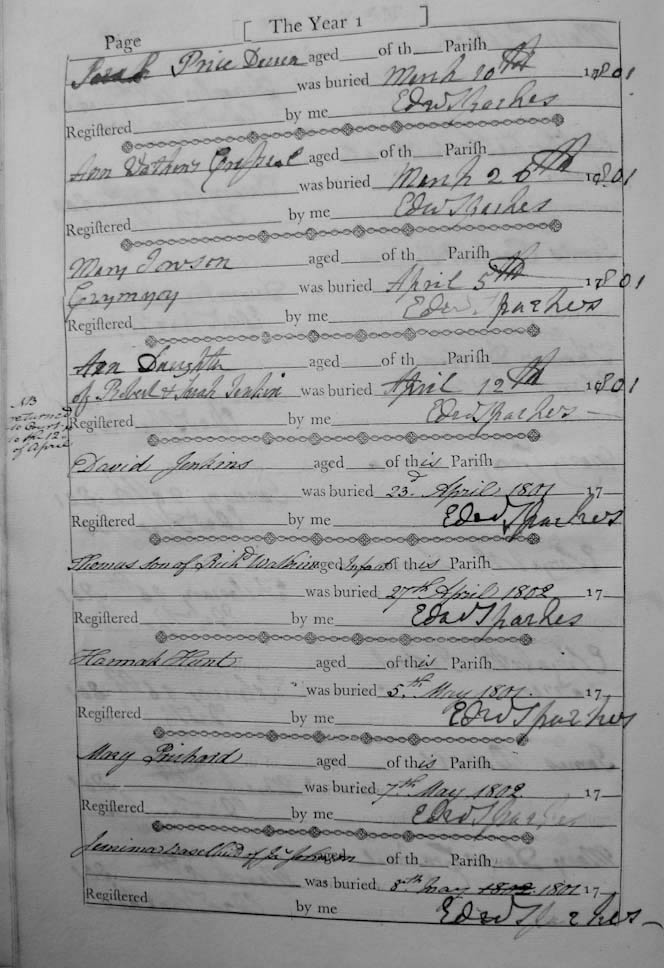 Page [ The Year 1 ]
Sarah Price aged of th Parish
was buried March 10th 1801
Registered by me Edw Sparkes
Ann Watkins aged of th Parish
was buried March 26th 1801
Registered by me Edw Sparkes
Mary Jowson aged of th Parish
was buried April 5th 1801
Registered by me Edw. Sparkes
Ann Daughtr aged of th Parish
of Robert & Sarah Jenkin was buried April 12th 1801
Registered by me Edw Sparkes
NB
returned
to
to the 12
of April
David Jenkins aged of this Parish
was buried 23d April 1801 17
Registered by me Edw Sparkes
Thomas son of Richd Watkins aged Infant of this Parish
was buried 27th April 1802 17
Registered by me Edw Sparkes
Hannah Hunt aged of this Parish
was buried 5th May 1801. 17
Registered by me Edw Sparkes
Mary Prichard aged of this Parish
was buried 7th May 1802 17
Registered by me Edw Sparkes
Jemima base Child of aged of th Parish
was buried 8th May 1802 1801 17
Registered by me Edw Sparkes